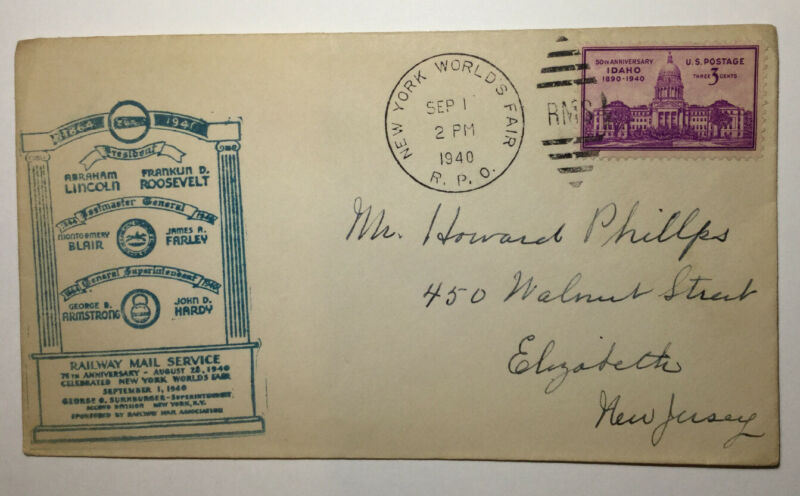 1864 1941
President
ABRAHAM LINCOLN
FRANKLIN D. ROOSEVELT
Postmaster General
MONTGOMERY BLAIR
JAMES A. FARLEY
General Superintendent
1864 1940
GEORGE B. ARMSTRONG
JOHN D. HARDY
RAILWAY MAIL SERVICE
76TH ANNIVERSARY - AUGUST 28, 1940
CELEBRATED NEW YORK WORLDS FAIR
SEPTEMBER 1, 1940
GEORGE O. SURNBURGER - SUPERINTENDENT
SECOND DIVISION NEW YORK, N.Y.
SPONSORED BY RAILWAY MAIL ASSOCIATION
NEW YORK WORLD'S FAIR
SEP 1
2 PM
1940
R. P. O.
RMS
50TH ANNIVERSARY
IDAHO
1890-1940
U.S. POSTAGE
THREE 3 CENTS
Mr. Howard Phillps
450 Walnut Street
Elizabeth
New Jersey